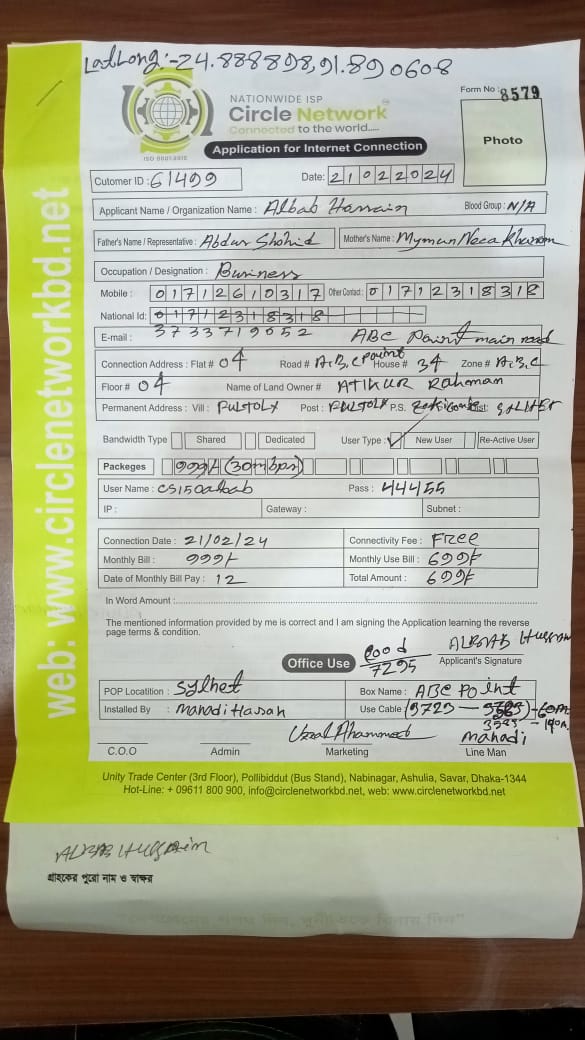 LatLong:-24.888898,91.890608
Form No : 8579
NATIONWIDE ISP
Circle Network
Connected to the world.....
ISO 9001:2015
Photo
Application for Internet Connection
Cutomer ID : 61499 Date: 21022024
Applicant Name / Organization Name : Albab Hossain Blood Group : N/A
Father's Name / Representative : Abdus Shohid Mother's Name : Mymun Neca Khanom
Occupation / Designation : Business
Mobile : 01712610317 Other Contact : 01712318318
National Id: 01712318318
3733719052
E-mail : ABC Point main road
Connection Address : Flat # 04 Road # A,B,C Point House # 34 Zone # A,B,C
Floor # 04 Name of Land Owner # ATIKUR Rahman
Permanent Address : Vill : PULTOLA Post : PULTOLA P.S. Dist: SYLHET
Bandwidth Type Shared Dedicated User Type : New User Re-Active User
Packeges 999/- (30mbps)
User Name : CS150albab Pass : 44455
IP : Gateway : Subnet :
Connection Date : 21/02/24 Connectivity Fee : Free
Monthly Bill : 999/- Monthly Use Bill : 699/-
Date of Monthly Bill Pay : 12 Total Amount : 699/-
In Word Amount :
The mentioned information provided by me is correct and I am signing the Application learning the reverse
page terms & condition.
Office Use
7295
ALBAB Hussain
Applicant's Signature
POP Locatition : Sylhet Box Name : ABC Point
Installed By : Mahadi Hassan Use Cable
C.O.O Admin Marketing
Mahadi
Line Man
Unity Trade Center (3rd Floor), Pollibiddut (Bus Stand), Nabinagar, Ashulia, Savar, Dhaka-1344
Hot-Line: + 09611 800 900, info@circlenetworkbd.net, web: www.circlenetworkbd.net
web: www.circlenetworkbd.net
ALBAB Hussain
গ্রাহকের পুরো নাম ও স্বাক্ষর